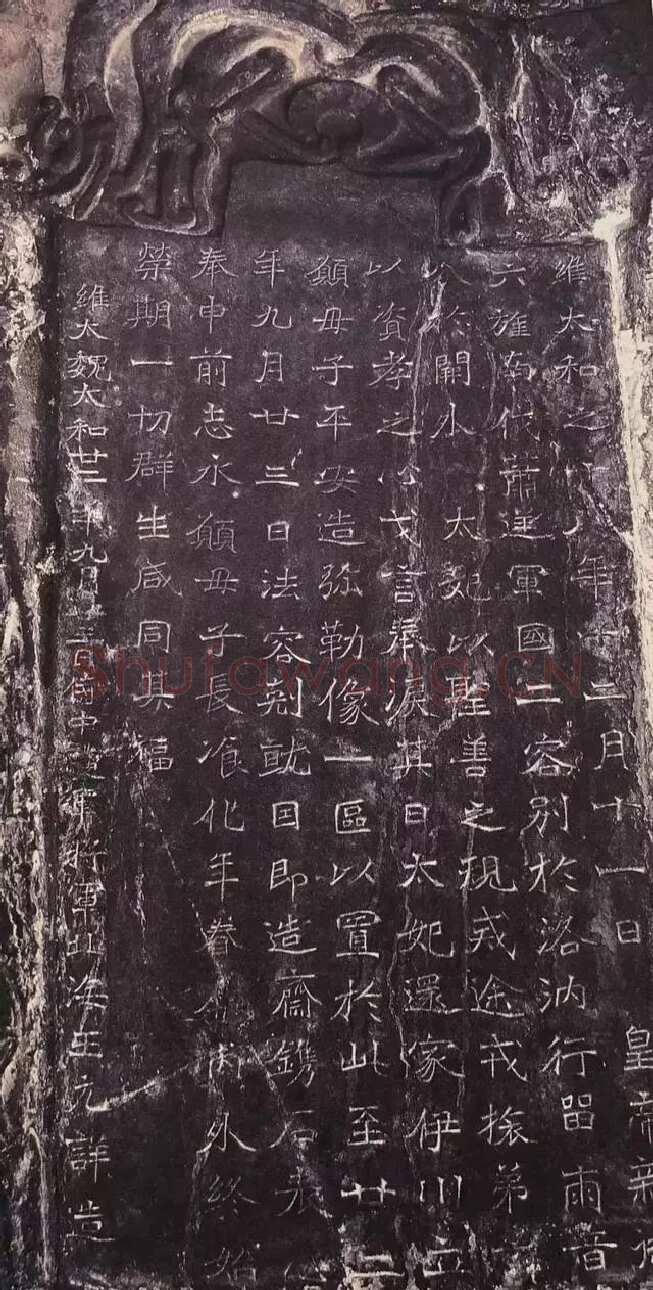 維太和之十八年十二月十一日皇帝親御
六旌南伐蕭逆軍國二容別於洛汭行留兩音
分於闕外太妃以聖善之規戒途戒旅弟子
以資孝之心戈言奉淚其日太妃還家伊川立
願母子平安造弥勒像一區以置於此至廿二
年九月廿三日法容剋就因即造齋鐫石表心
奉申前志永願母子長飡化年眷屬內外終始
榮期一切群生咸同其福
維大魏太和廿二年九月廿三日侍中護軍將軍北海王元詳造
Shufawang.CN